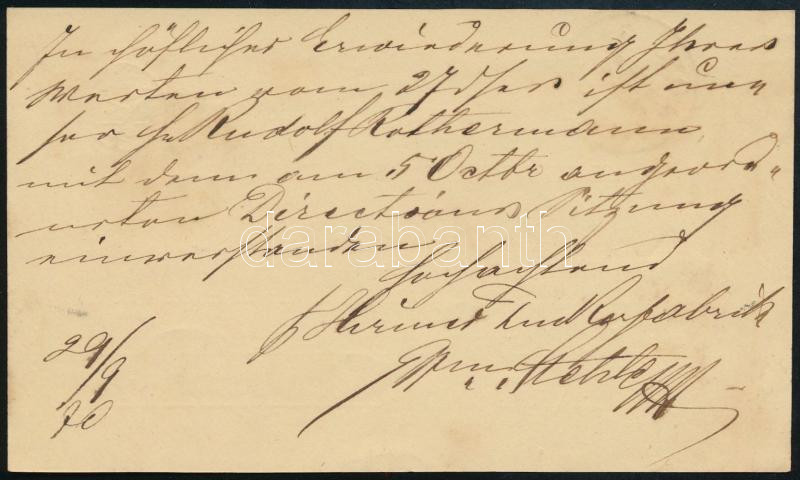 In höflicher Erwiederung Ihres
Werten vom 27 dses ist un
ser H Rudolf Rothermann
mit dem am 5 Octbr angeord„
neten Directions Sitzung
einverstanden.
darabanth
Hochachtend
Zuckerfabrik
29/9
70